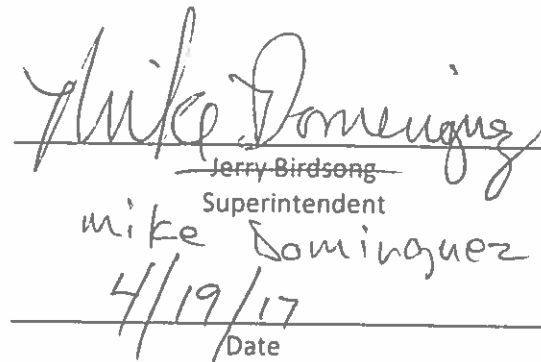 Mike Dominguez
Jerry Birdsong
Superintendent
mike Dominguez
4/19/17
Date